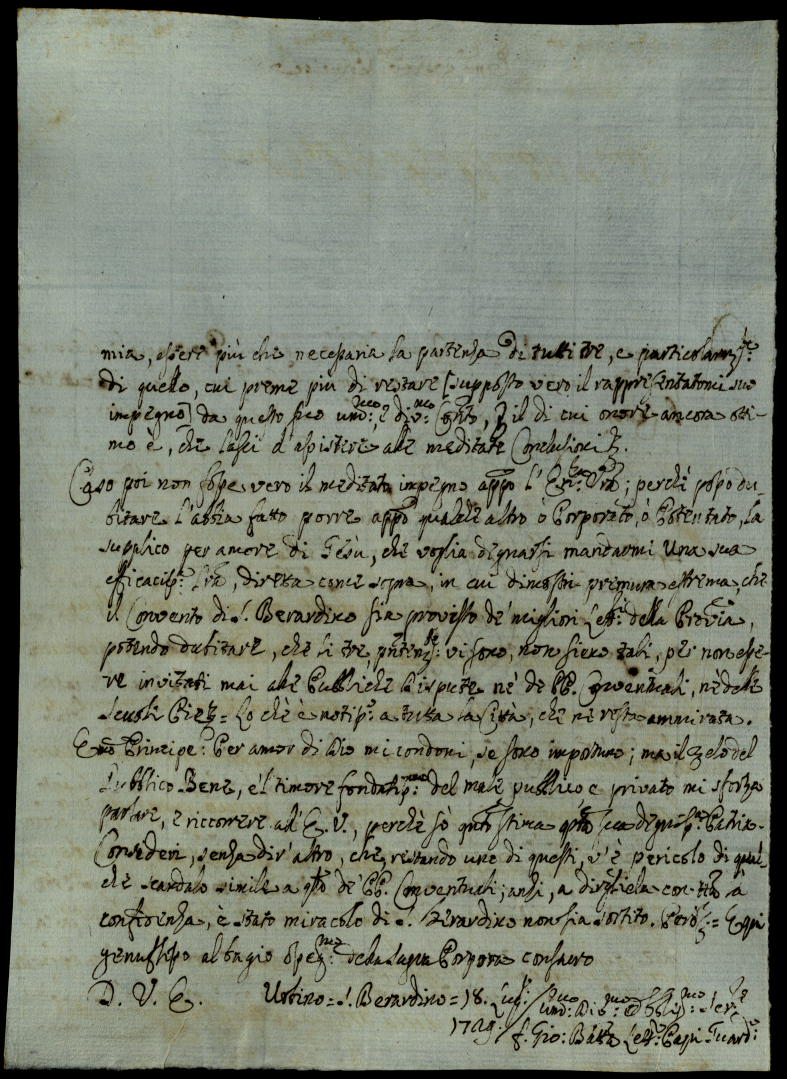 mia, essere più che necessaria la partenza di tutti tre, e particolarm:te
di quello, cui preme più di restare [supposto vero il rappresentatomi suo
impegno] da questo suo um:mo, e div:mo Con:to, il di cui onore ancora otti-
mo è, che lasci d'assistere alle meditate Conclusioni
Caso poi non fosse vero il meditato impegno appo l'Em:za Vra; perchè posso du-
bitare l'abbia fatto porre appo qualche altro ò Porporato, ò Potentato, la
supplico per amore di Gesù, che voglia degnarsi mandarmi una sua
efficaciss:a Lra, diretta come sopra, in cui dimostri premura estrema, che
il Convento di S. Berardino sia provisto de' migliori Lett:ri della Prov:cia,
potendo dubitare, che li tre, vi sono, non siero tali, per non esse-
re invitati mai alle Pubbliche Dispute nè de PP. Conventuali, nè delle
Scuole Pie = Lo chè è notiss:o a tutta la Città, che nè resta ammirata.
Emo Principe: Per amor di Dio mi condoni, se sono importuno; ma il zelo del
Pubblico Bene, e'l timore fondatiss:mo del male pubblico e privato mi sforza
parlare, e riccorrere all'E. V., perchè sò qnto stima qsta sua degniss:a Patria.
Consideri, senza dir'altro, che, restando uno di questi, v'è pericolo di qual-
che scandalo simile a qto de' PP. Conventuali; anzi, a dirgliela con tta
confidenza, è stato miracolo di S. Berardino non sia sortito. =
genuflesso al bagio della Sagra Porpora consacro
D. V. E. Urbino = S. Berardino = 18. Lug:o
1729. Um:mo Div:mo Obblig:mo Ser:re
f. Gio: Batta Lett:re Capp: Guard:o